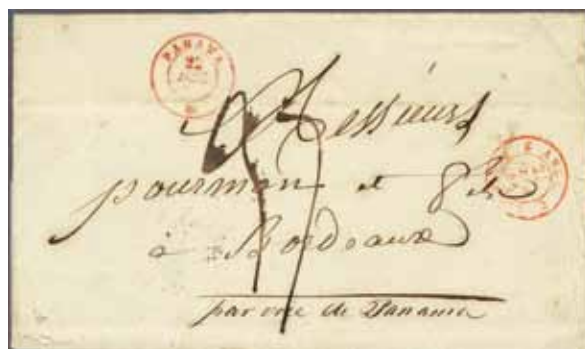 PANAMA
22
Messieurs
pourman et fils
à Bordeaux
par voie de Panama